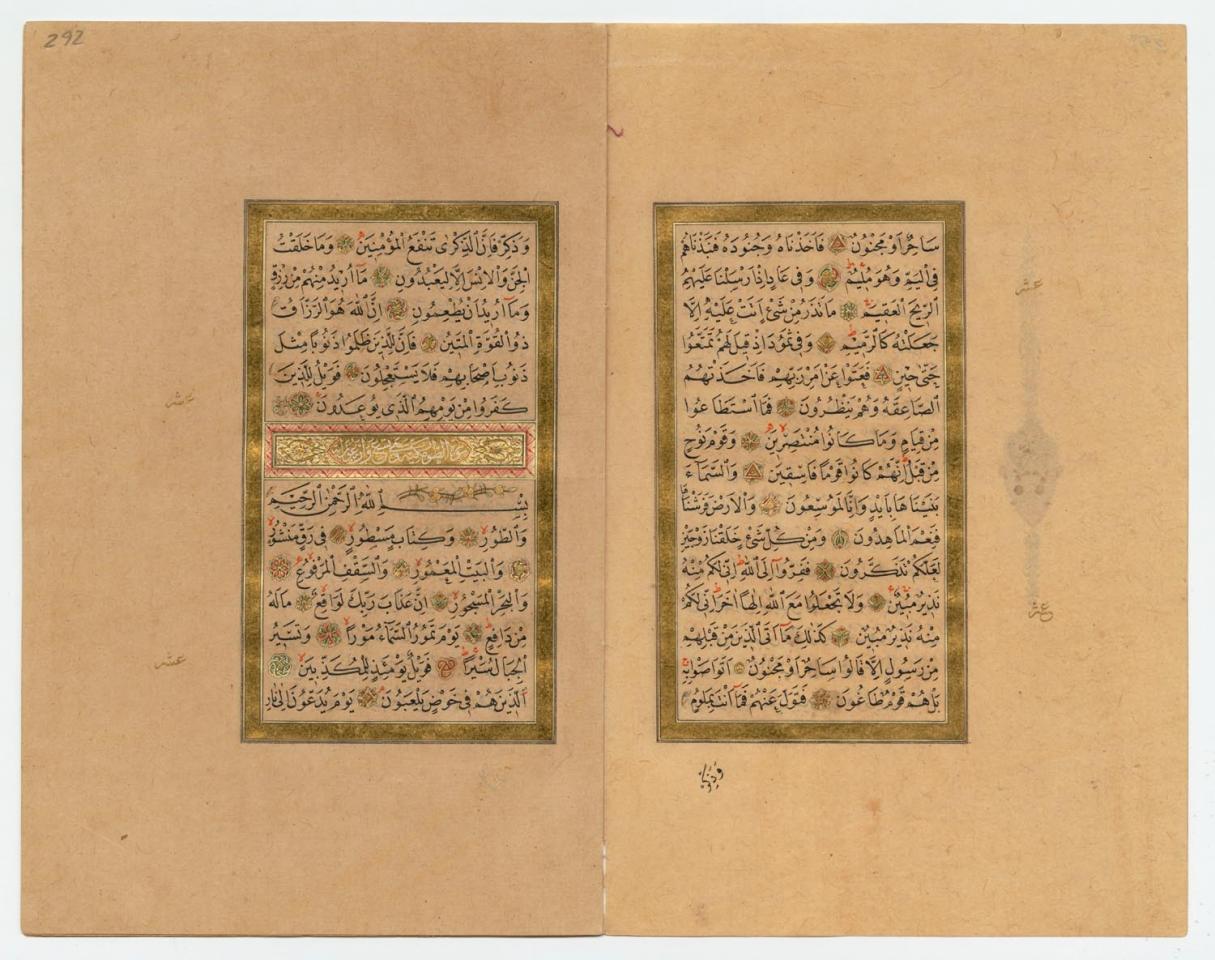 سَاحِرٌ اَوْ مَجْنُونٌ فَاَخَذْنَاهُ وَجُنُودَهُ فَنَبَذْنَاهُمْ
فِى الْيَمِّ وَهُوَ مُلِيمٌ وَفِى عَادٍ اِذْ اَرْسَلْنَا عَلَيْهِمُ
الرِّيحَ الْعَقِيمَ مَا تَذَرُ مِنْ شَىْءٍ اَتَتْ عَلَيْهِ اِلَّا
جَعَلَتْهُ كَالرَّمِيمِ وَفِى ثَمُودَ اِذْ قِيلَ لَهُمْ تَمَتَّعُوا
حَتّٰى حِينٍ فَعَتَوْا عَنْ اَمْرِ رَبِّهِمْ فَاَخَذَتْهُمُ
الصَّاعِقَةُ وَهُمْ يَنْظُرُونَ فَمَا اسْتَطَاعُوا
مِنْ قِيَامٍ وَمَا كَانُوا مُنْتَصِرِينَ وَقَوْمَ نُوحٍ
مِنْ قَبْلُ اِنَّهُمْ كَانُوا قَوْمًا فَاسِقِينَ وَالسَّمَاءَ
بَنَيْنَاهَا بِاَيْدٍ وَاِنَّا لَمُوسِعُونَ وَالْاَرْضَ فَرَشْنَاهَا
فَنِعْمَ الْمَاهِدُونَ وَمِنْ كُلِّ شَىْءٍ خَلَقْنَا زَوْجَيْنِ
لَعَلَّكُمْ تَذَكَّرُونَ فَفِرُّوا اِلَى اللّٰهِ اِنِّى لَكُمْ مِنْهُ
نَذِيرٌ مُبِينٌ وَلَا تَجْعَلُوا مَعَ اللّٰهِ اِلٰهًا اٰخَرَ اِنِّى لَكُمْ
مِنْهُ نَذِيرٌ مُبِينٌ كَذٰلِكَ مَا اَتَى الَّذِينَ مِنْ قَبْلِهِمْ
مِنْ رَسُولٍ اِلَّا قَالُوا سَاحِرٌ اَوْ مَجْنُونٌ اَتَوَاصَوْا بِهِ
بَلْ هُمْ قَوْمٌ طَاغُونَ فَتَوَلَّ عَنْهُمْ فَمَا اَنْتَ بِمَلُومٍ
وَذَكِّرْ
عشر
عشر
292
وَذَكِّرْ فَاِنَّ الذِّكْرٰى تَنْفَعُ الْمُؤْمِنِينَ وَمَا خَلَقْتُ
الْجِنَّ وَالْاِنْسَ اِلَّا لِيَعْبُدُونِ مَا اُرِيدُ مِنْهُمْ مِنْ رِزْقٍ
وَمَا اُرِيدُ اَنْ يُطْعِمُونِ اِنَّ اللّٰهَ هُوَ الرَّزَّاقُ
ذُو الْقُوَّةِ الْمَتِينُ فَاِنَّ لِلَّذِينَ ظَلَمُوا ذَنُوبًا مِثْلَ
ذَنُوبِ اَصْحَابِهِمْ فَلَا يَسْتَعْجِلُونِ فَوَيْلٌ لِلَّذِينَ
كَفَرُوا مِنْ يَوْمِهِمُ الَّذِى يُوعَدُونَ
بِسْمِ اللّٰهِ الرَّحْمٰنِ الرَّحِيمِ
وَالطُّورِ وَكِتَابٍ مَسْطُورٍ فِى رَقٍّ مَنْشُورٍ
وَالْبَيْتِ الْمَعْمُورِ وَالسَّقْفِ الْمَرْفُوعِ
وَالْبَحْرِ الْمَسْجُورِ اِنَّ عَذَابَ رَبِّكَ لَوَاقِعٌ مَا لَهُ
مِنْ دَافِعٍ يَوْمَ تَمُورُ السَّمَاءُ مَوْرًا وَتَسِيرُ
الْجِبَالُ سَيْرًا فَوَيْلٌ يَوْمَئِذٍ لِلْمُكَذِّبِينَ
اَلَّذِينَ هُمْ فِى خَوْضٍ يَلْعَبُونَ يَوْمَ يُدَعُّونَ اِلٰى نَارِ
عشر
عشر